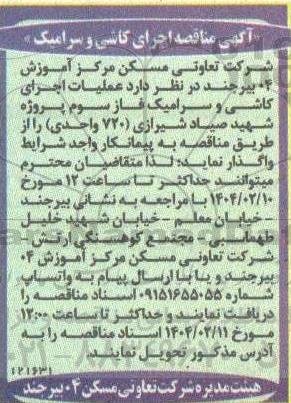 «آگهی مناقصه اجرای کاشی و سرامیک»
شرکت تعاونی مسکن مرکز آموزش
۰۴ بیرجند در نظر دارد عملیات اجرای
کاشی و سرامیک فاز سوم پروژه
شهید صیاد شیرازی (۷۲۰ واحدی) را از
طریق مناقصه به پیمانکار واجد شرایط
واگذار نماید؛ لذا متقاضیان محترم
میتوانند حداکثر تا ساعت ۱۲ مورخ
۱۴۰۴/۰۲/۱۰ با مراجعه به نشانی بیرجند
- خیابان معلم - خیابان شهید خلیل
طهماسبی - مجتمع کوهسنگی ارتش -
شرکت تعاونی مسکن مرکز آموزش ۰۴
بیرجند و یا با ارسال پیام به واتساپ
شماره ۰۹۱۵۱۶۵۵۰۵۵ اسناد مناقصه را
دریافت نمایند و حداکثر تا ساعت ۱۲:۰۰
مورخ ۱۴۰۴/۰۲/۱۱ اسناد مناقصه را به
آدرس مذکور تحویل نمایند.
۱۲۱۶۳۱
هیئت مدیره شرکت تعاونی مسکن ۰۴ بیرجند